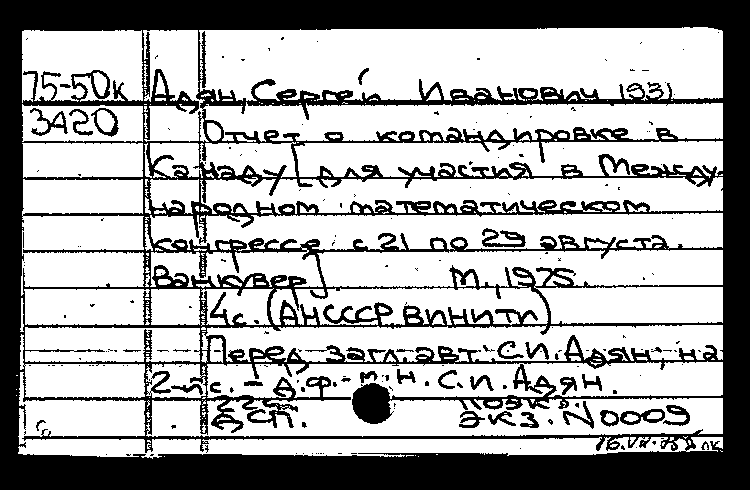 75-50к Адян, Сергей Иванович 1931
3420 Отчет о командировке в
Канаду [для участия в Между-
народном математическом
конгрессе с 21 по 29 августа.
Ванкувер]. М., 1975.
4с. (АН СССР ВИНИТИ)
Перед загл. авт.: С.И. Адян; на
2-й с. - д.ф.-м.н. С.И. Адян.
ДСП. экз. N0009